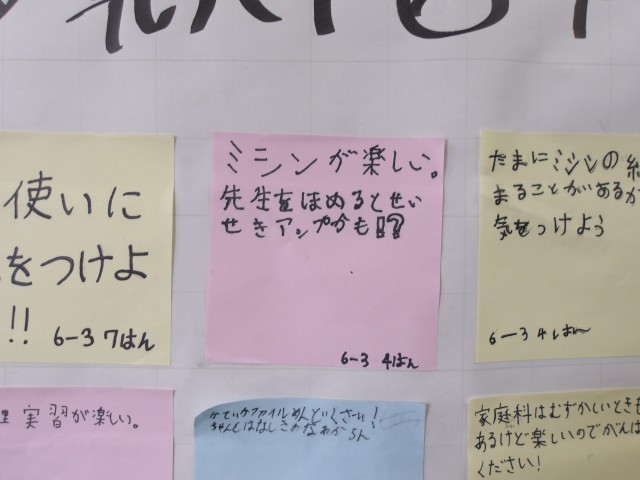 使いに
をつけよ
!!
6-3 7はん
ミシンが楽しい。
先生をほめるとせい
せきアップかも!?
6-3 4はん
たまにミシンの
まることがあるが
気をつけよう
6-3 4はん
実習が楽しい。
かていかファイルめんどくさい!
ちゃんとはなしきかなあか
家庭科はむずかしいときも
あるけど楽しいのでがんば
ください!